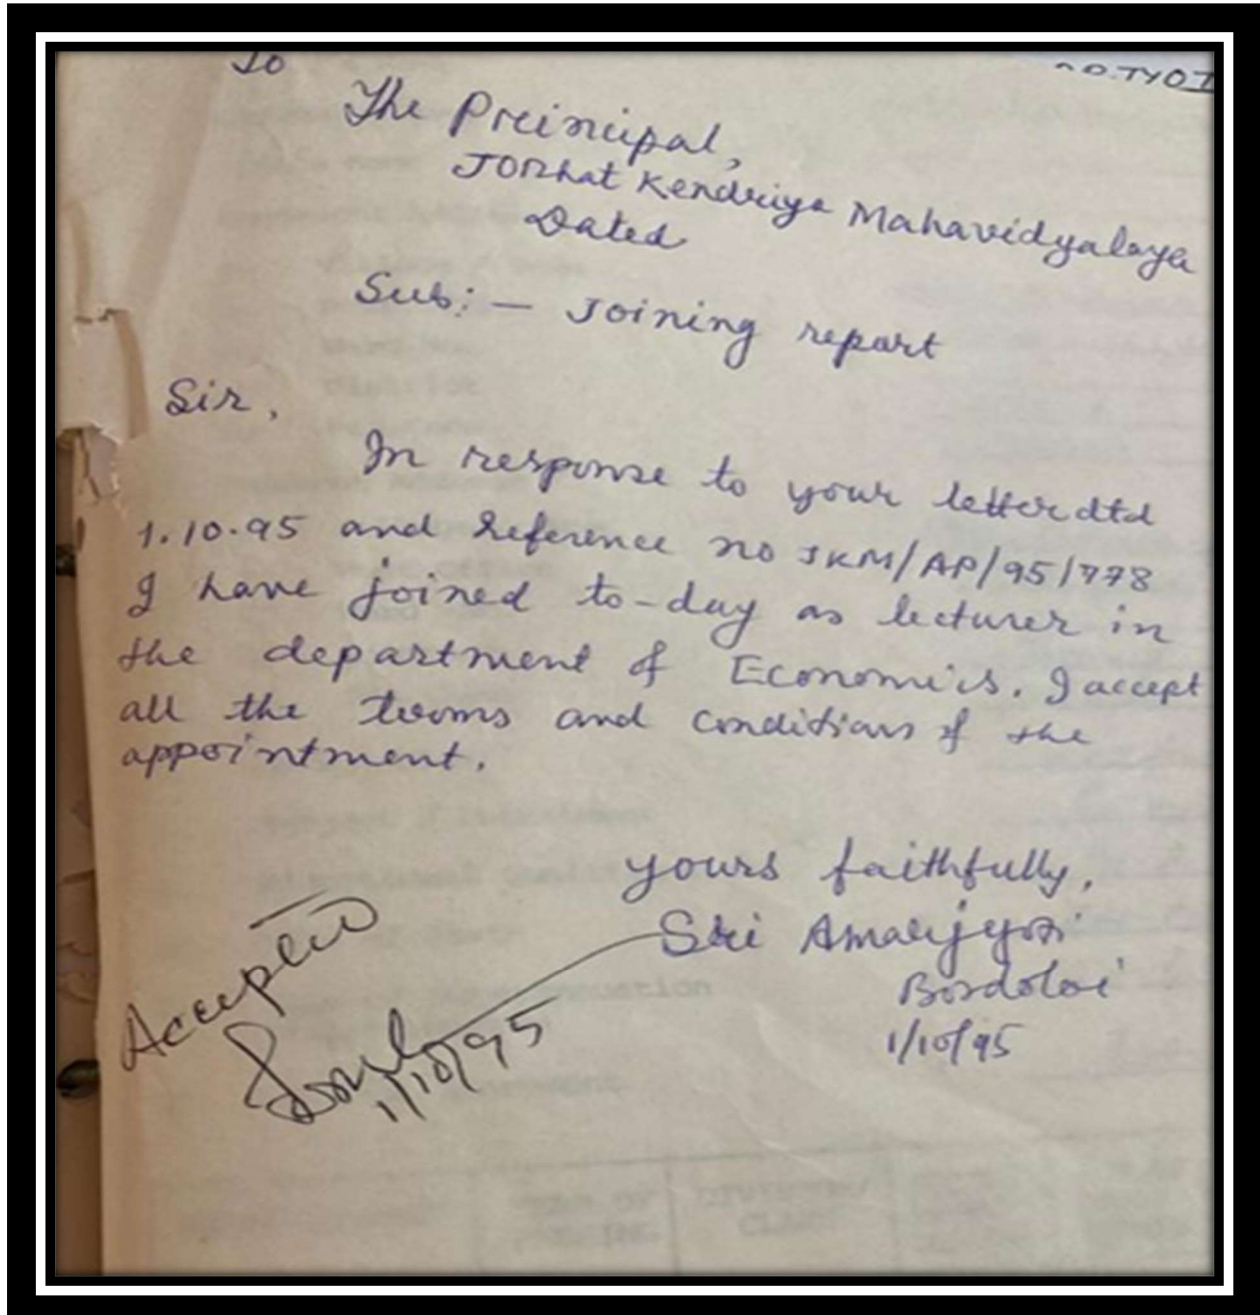 To
The Preincipal,
JORhat Kendriya Mahavidyalaya
Dated
Sub:- Joining repart
Sir,
In response to your letter dtd
1.10.95 and Reference no JKM/AP/95/778
I have joined to-day as lecturer in
the department of Economics. I accept
all the terms and conditions of the
appointment.
yours faithfully,
Sri Amarjyoti
Bordoloi
1/10/95
Accepted
1/10/95